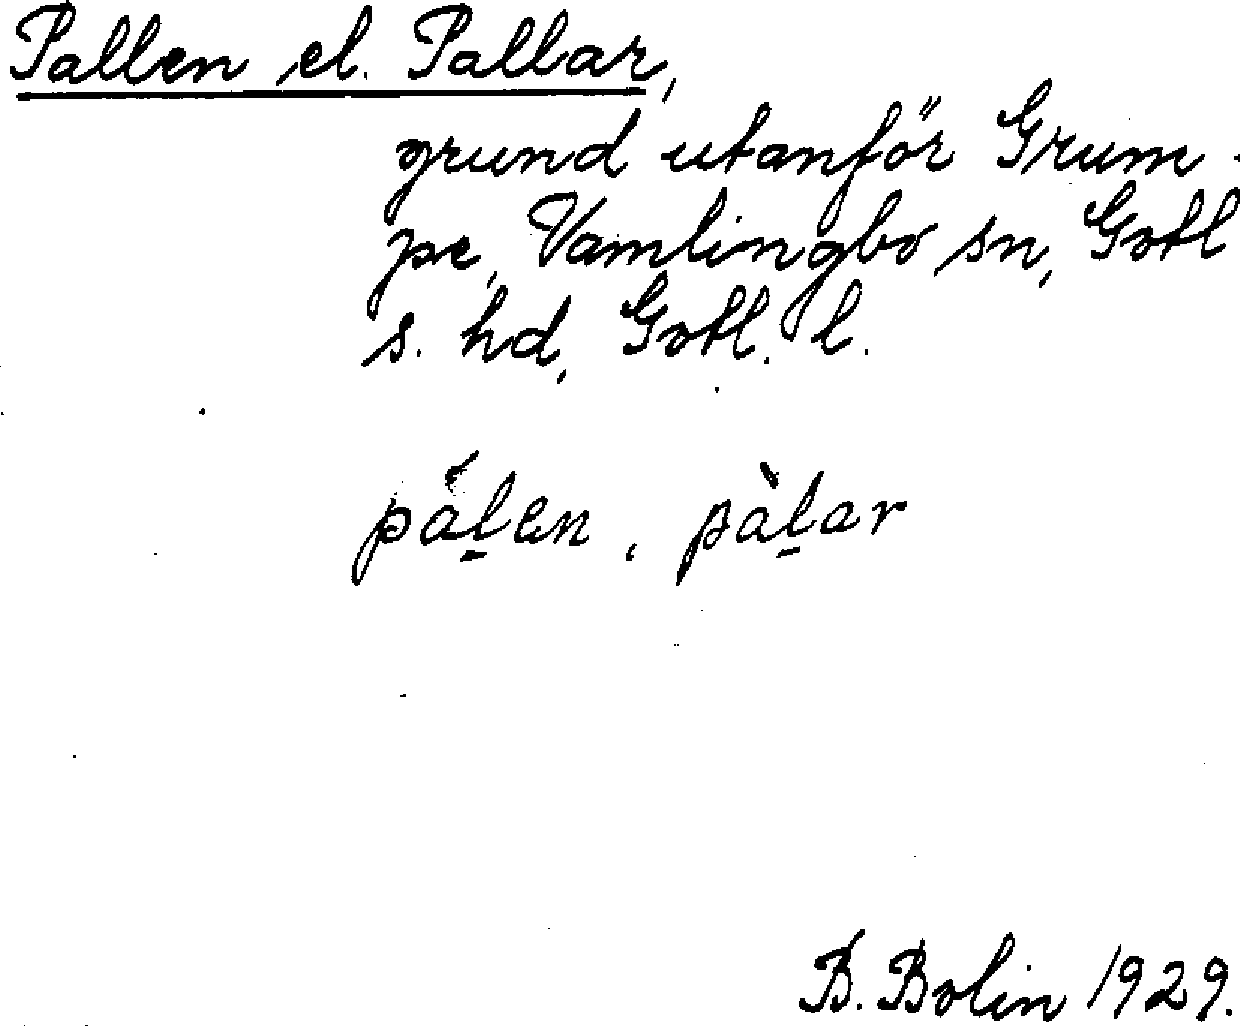 Pallen el. Pallar,
grund utanför Grum-
pe, Vamlingbo sn, Gotl
s. hd, Gotl. l.
pál̲en, pàl̲ar
B. Bolin 1929.